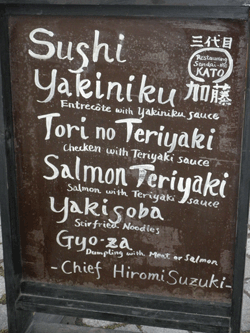 Sushi
三代目
Restaurang
Sendai
KATO
加藤
Yakiniku
Entrecôte with Yakiniku sauce
Tori no Teriyaki
Checken with Teriyaki sauce
Salmon Teriyaki
Salmon with Teriyaki sauce
Yakisoba
Scirfried Noodles
Gyo-za
Dumpling with Meat or Salmon
-Chief Hiromi Suzuki-